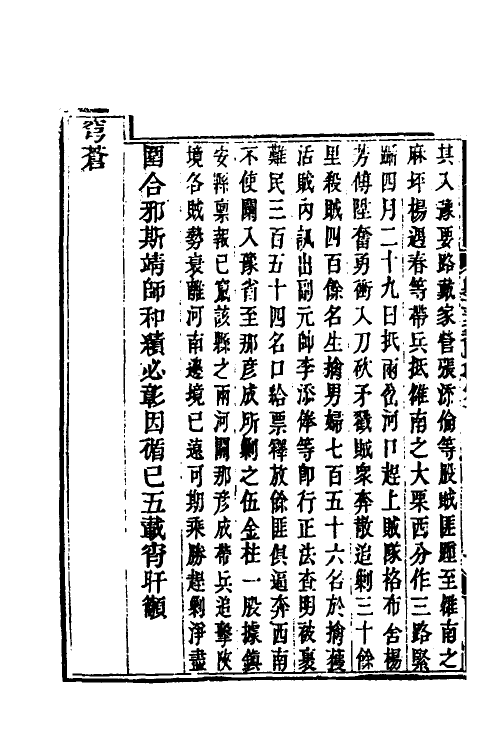 其入豫要路戴家營張添倫等股賊匪遁至雒南之
麻坪楊遇春等帶兵抵雒南之大栗西分作三路緊
躡四月二十九日抵兩岔河口趕上賊隊格布舍楊
芳傅陞奮勇衝入刀砍矛戳賊衆奔散追剿三十餘
里殺賊四百餘名生擒男婦七百五十六名於擒獲
活賊內訊出副元帥李添俸等卽行正法查明被裹
難民三百五十四名口給票釋放餘匪俱逼奔西南
不使闌入豫省至那彥成所剿之伍金柱一股據鎭
安縣稟報已竄該縣之兩河關那彥成帶兵追擊陝
境各賊勢衰離河南邊境已遠可期乘勝趕剿淨盡
圍合邪斯靖師和績必彰因循已五載宵旰籲
穹蒼